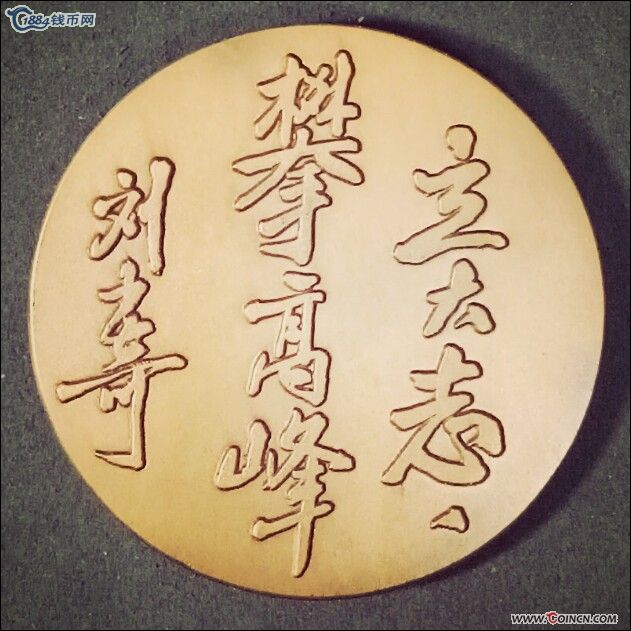 立大志、
攀高峰
刘奇
1884钱币网
WWW.COINCN.COM